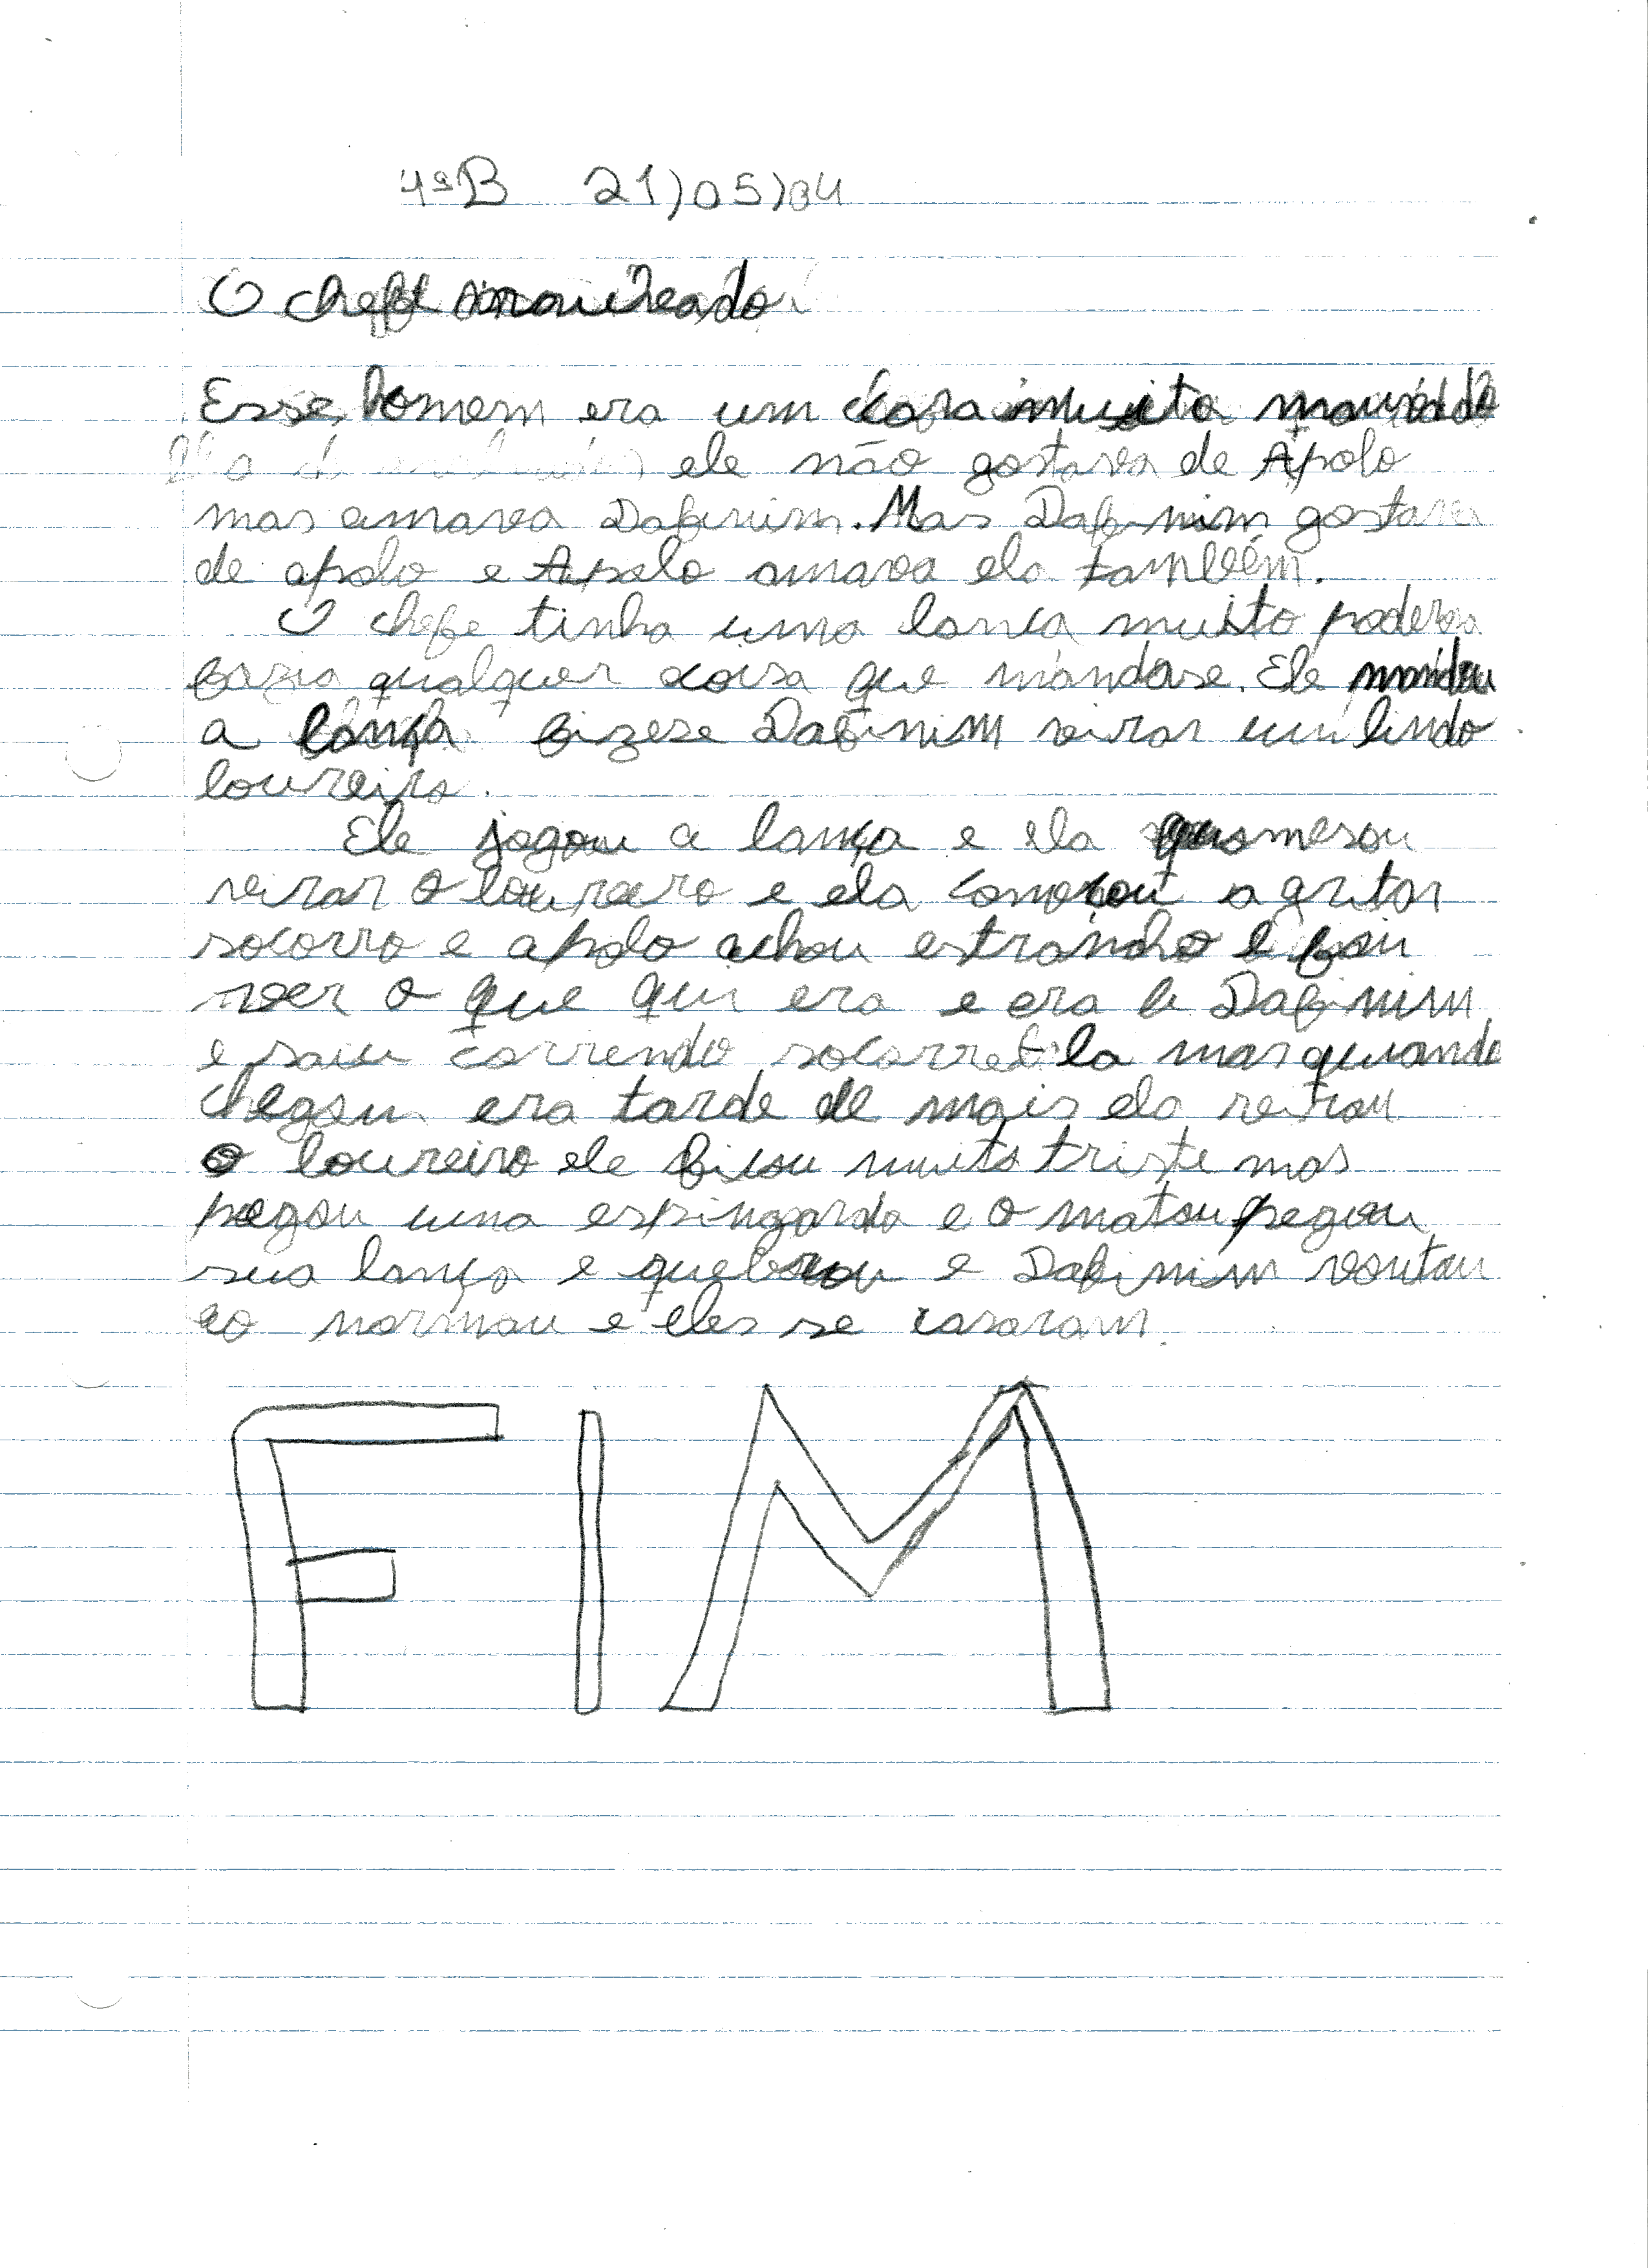 4ªB 21/05/04
O chefe
Esse homem era um cara muito
ele não gostava de Apolo
mas amava Dafinim. Mas Dafinim gostava
de apolo e Apolo amava ela também.
O chefe tinha uma lança muito poderosa
fazia qualquer coisa que mandase. Ele mandou
a lança fizese Dafinim virar um lindo
loureiro.
Ele jogou a lança e ela
virar o loureiro e ela comesou a gritar
socorro e apolo achou estranho e foi
ver o que qui era e era a Dafinim
e saiu correndo socorrela mas quando
chegou era tarde de mais ela virou
o loureiro ele ficou muito triste mas
pegou uma espingarda e o matou pegou
sua lança e quebrou e Dafinim voutou
ao normau e eles se casaram.
FIM